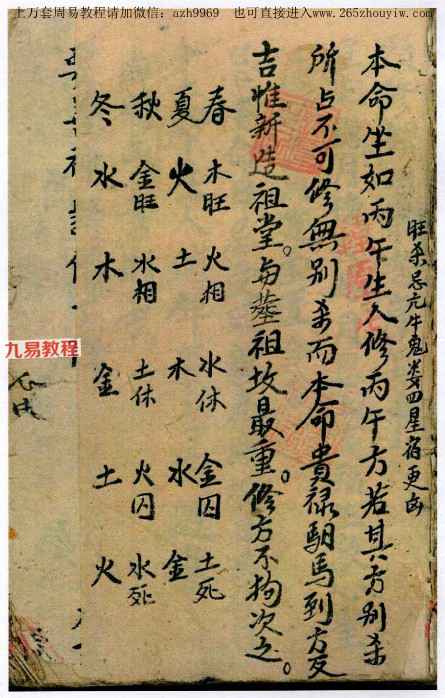 上万套周易教程请加微信：azh9969　也可直接进入www.265zhouyiw.com
旺杀忌亢牛鬼娄四星宿更凶
本命坐如丙午生人修丙午方若其方别杀
所占不可修無别杀而本命貴禄馹馬到方反
吉惟新造祖堂。与塟祖坟最重。修方不拘次之。
春 木旺 火相 水休 金囚 土死
夏 火 土 木 水 金
秋 金旺 水相 土休 火囚 水死
冬 水 木 金 土 火
九易教程